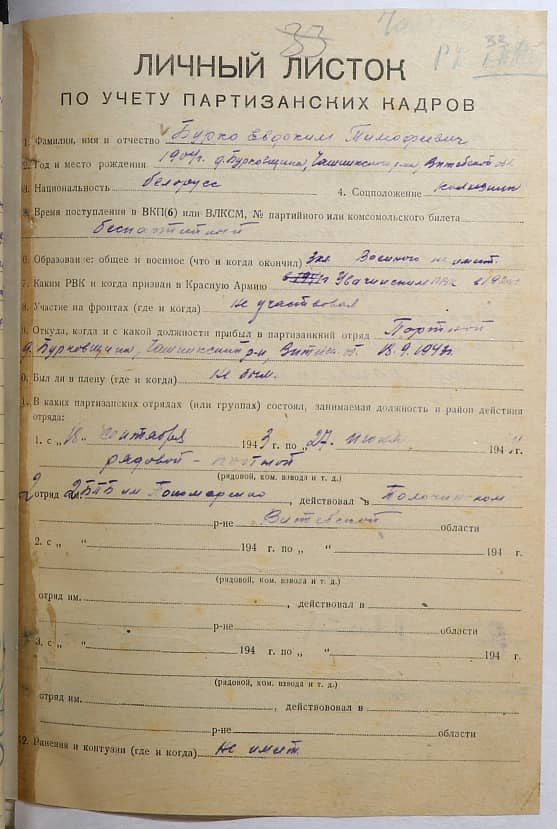 33
33
ЛИЧНЫЙ ЛИСТОК
ПО УЧЕТУ ПАРТИЗАНСКИХ КАДРОВ
1. Фамилия, имя и отчество Бурко Евдоким Тимофеевич
2. Год и место рождения 1904г. д. Бурковщина, Чашникский р-н, Витебской
3. Национальность белорус 4. Соцположение
5. Время поступления в ВКП(б) или ВЛКСМ, № партийного или комсомольского билета
беспартийный
6. Образование: общее и военное (что и когда окончил) 3кл. Военного не имеет.
7. Каким РВК и когда призван в Красную Армию РВК в
8. Участие на фронтах (где и когда) не участвовал
9. Откуда, когда и с какой должности прибыл в партизанкий отряд Портной
д. Бурковщина, Чашникский р-н, 18.9.1943г.
10. Был ли в плену (где и когда) не был.
11. В каких партизанских отрядах (или группах) состоял, занимаемая должность и район действия
отряда:
1. с „18" сентября 1943 г. по „27" июня 1944 г.
рядовой -
(рядовой, ком. взвода и т. д.)
2 отряд 2ББ им Пономаренко, действовал в Толочинском
р-не Витебской области
2. с „ " 194 г. по „ " 194 г.
(рядовой, ком. взвода и т. д.)
отряд им. , действовал в
р-не области
3. с „ " 194 г. по „ " 194 г.
(рядовой, ком. взвода и т. д.)
отряд им. , действововал в
р-не области
12. Ранения и контузии (где и когда) не имеет.